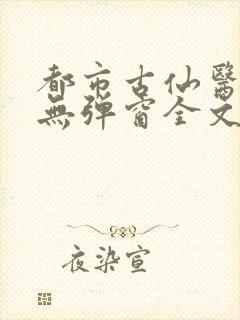 都市古仙醫
無彈窗全文
夜染宣